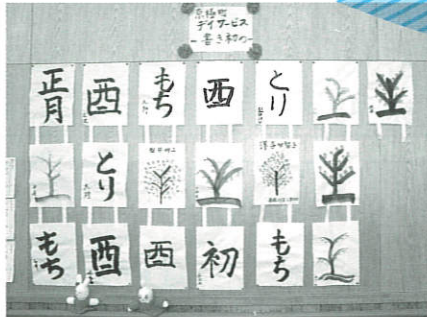 京極町
デイサービス
-書き初め-
正月
酉
もち
酉
とり
とり
もち
酉
酉
初
もち